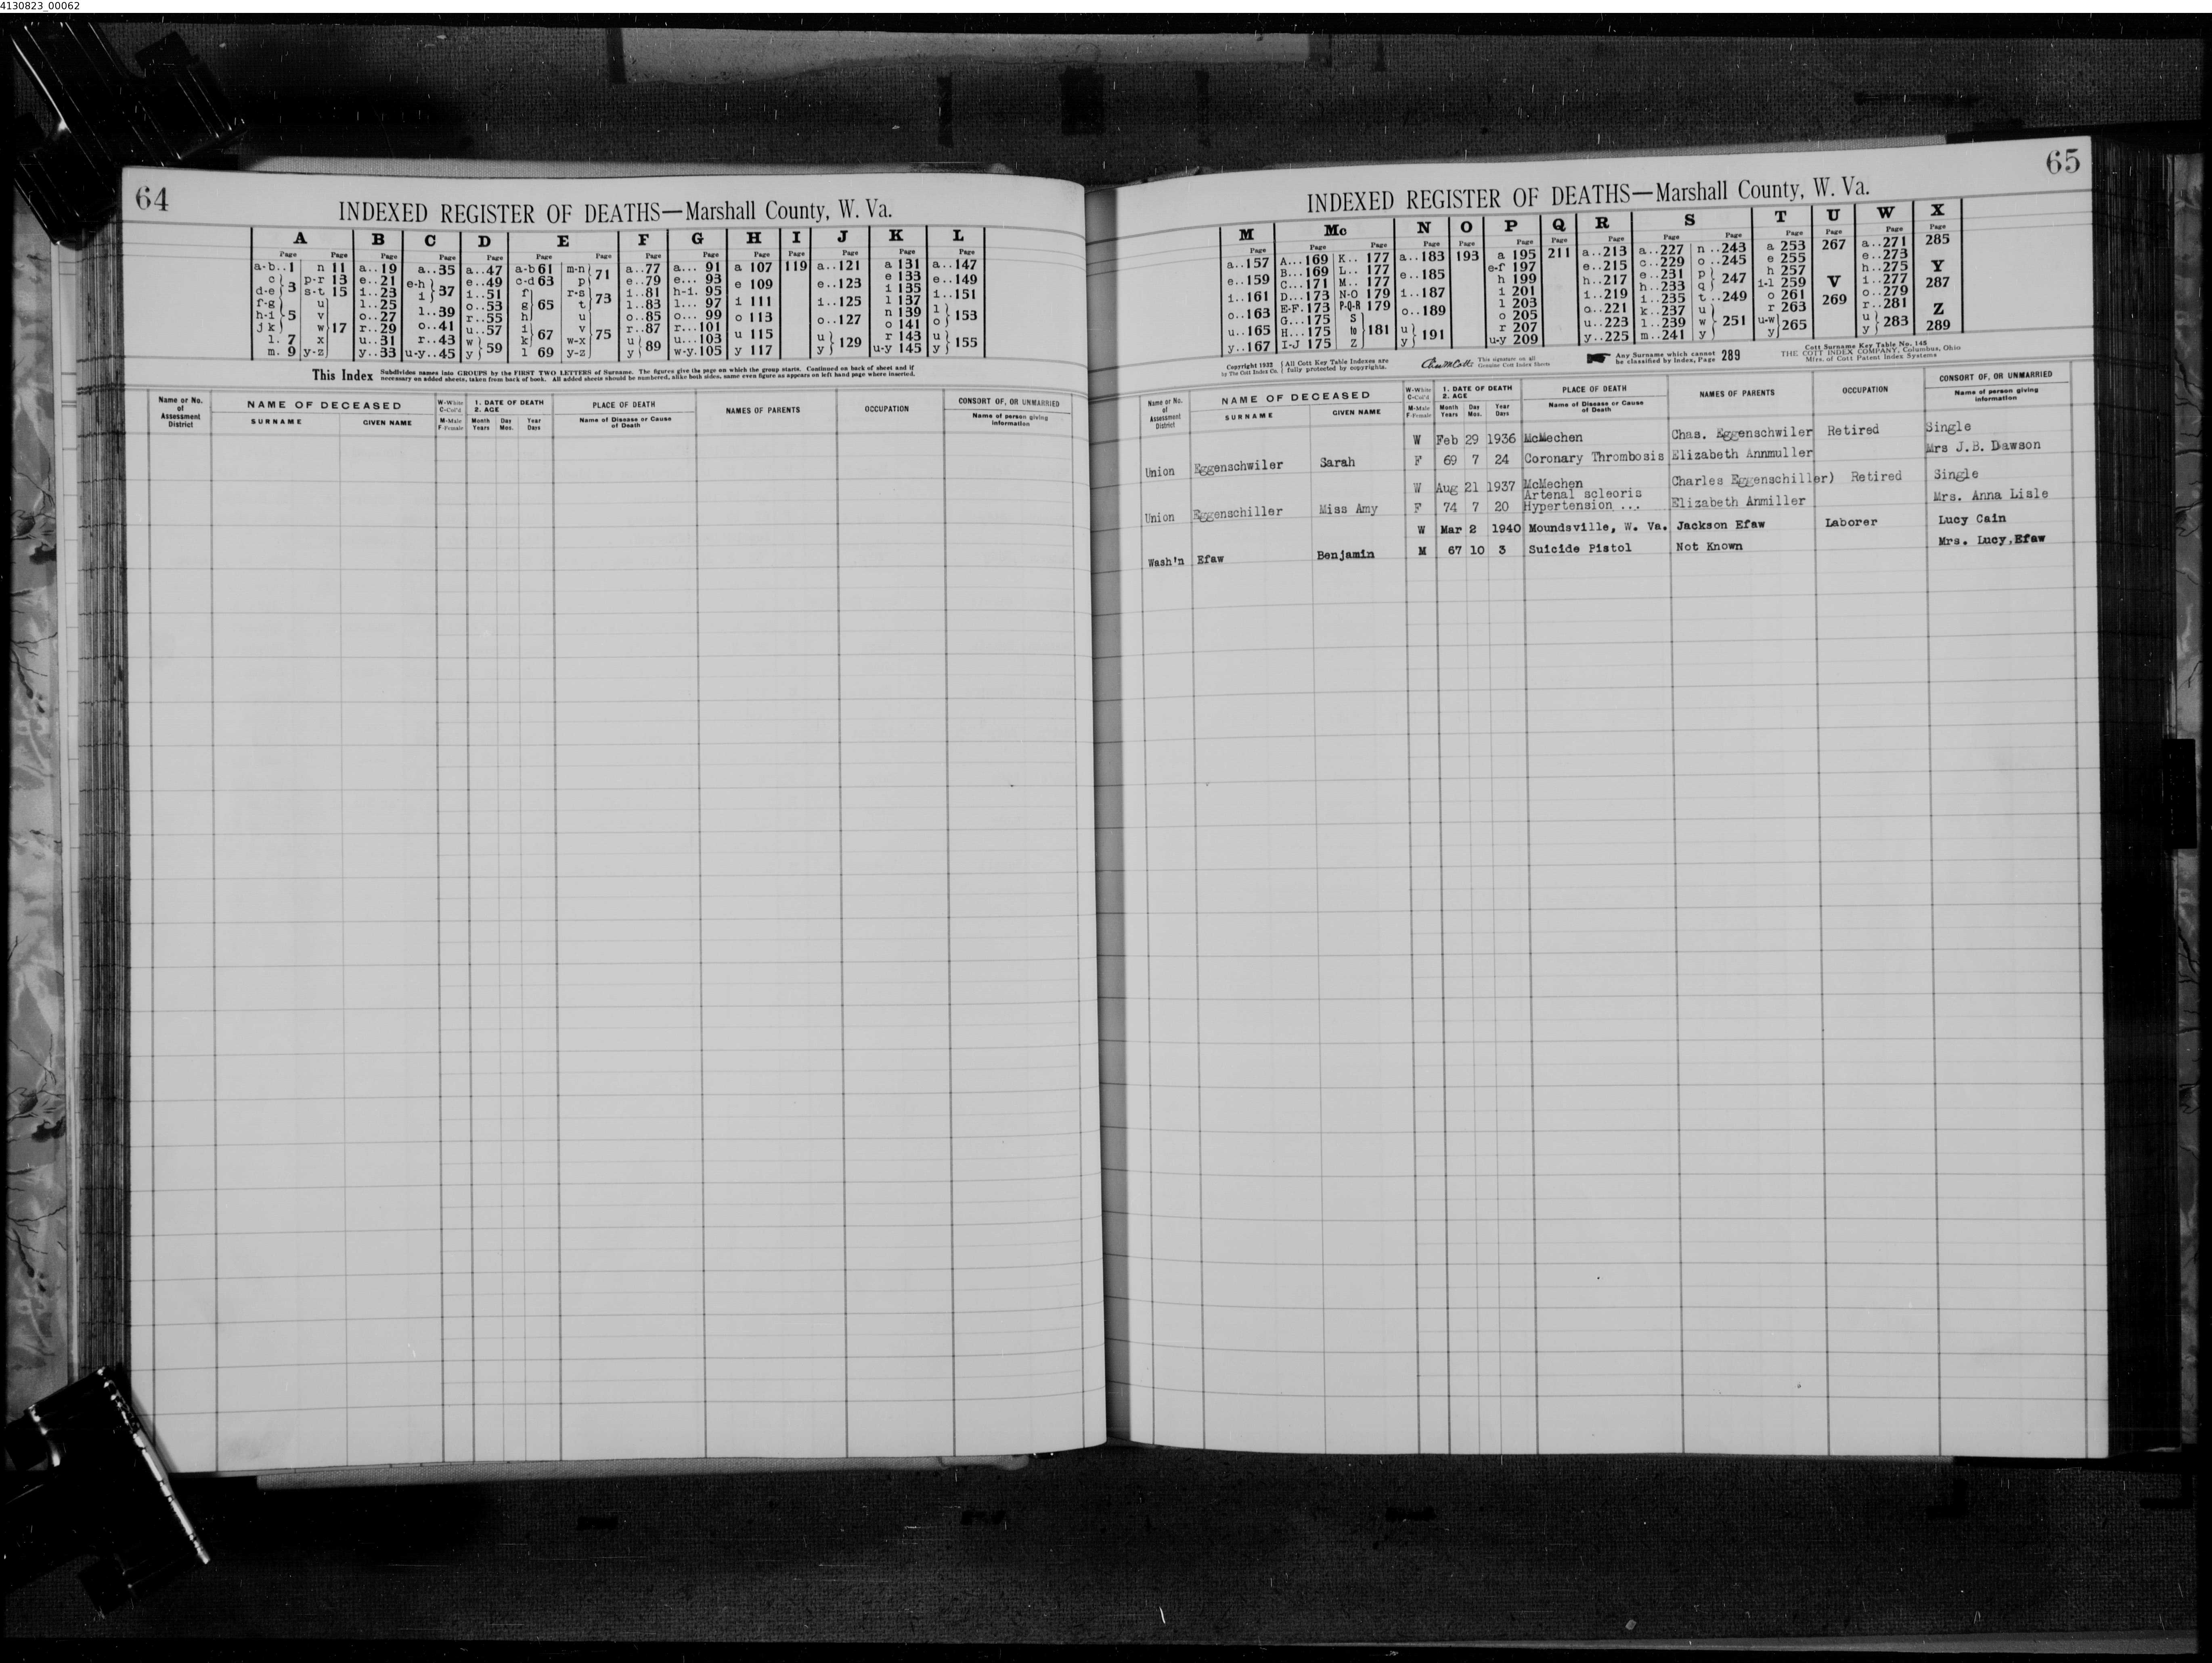 4130823_00062
64
INDEXED REGISTER OF DEATHS—Marshall County, W. Va.
A B C D E F G H I J K L
Page Page Page Page Page Page Page Page Page Page Page Page Page Page
a-b..1 n 11 a..19 a..35 a..47 a-b 61 m-n 71 a..77 a... 91 a 107 119 a..121 a 131 a..147
c 3 p-r 13 e..21 e-h 37 e..49 c-d 63 p e..79 e... 93 e 109 e..123 e 133 e..149
d-e s-t 15 i..23 i i..51 f 65 r-s 73 i..81 h-i. 95 i 111 i..125 i 135 i..151
f-g 5 u 17 l..25 l..39 o..53 g t l..83 l... 97 o 113 o..127 l 137 l 153
h-i v o..27 o..41 r..55 h u 75 o..85 o... 99 u 115 u 129 n 139 o
j k w r..29 r..43 u..57 i 67 v r..87 r...101 y 117 y o 141 u 155
l. 7 x u..31 u-y..45 w 59 k w-x u 89 u...103 r 143 y
m. 9 y-z y..33 y l 69 y-z y w-y.105 u-y 145
This Index Subdivides names into GROUPS by the FIRST TWO LETTERS of Surname. The figures give the page on which the group starts. Continued on back of sheet and if
necessary on added sheets, taken from back of book. All added sheets should be numbered, alike both sides, same even figure as appears on left hand page where inserted.
Name or No. of Assessment District
NAME OF DECEASED
SURNAME GIVEN NAME
W-White C-Col'd
M-Male F-Female
1. DATE OF DEATH
2. AGE
Month Day Year
Years Mos. Days
PLACE OF DEATH
Name of Disease or Cause of Death
NAMES OF PARENTS
OCCUPATION
CONSORT OF, OR UNMARRIED
Name of person giving information
65
INDEXED REGISTER OF DEATHS—Marshall County, W. Va.
M Mc N O P Q R S T U W X
Page Page Page Page Page Page Page Page Page Page Page Page Page Page
a..157 A...169 K.. 177 a..183 193 a 195 211 a..213 a..227 n ..243 a 253 267 a..271 285
e..159 B...169 L.. 177 e..185 e-f 197 e..215 c..229 o ..245 e 255 e..273
i..161 C...171 M.. 177 i..187 h 199 h..217 e..231 p 247 h 257 V h..275 Y
o..163 D...173 N-O 179 o..189 i 201 i..219 h..233 q i-l 259 269 i..277 287
u..165 E-F.173 P-Q-R 179 u 191 l 203 o..221 i..235 t ..249 o 261 o..279
y..167 G...175 S to Z 181 y o 205 u..223 k..237 u 251 r 263 r..281 Z
H...175 r 207 y..225 l..239 w u-w 265 u 283 289
I-J 175 u-y 209 m..241 y y y
Copyright 1932 by The Cott Index Co.
All Cott Key Table Indexes are fully protected by copyrights.
This signature on all Genuine Cott Index Sheets
Any Surname which cannot be classified by Index, Page 289
Cott Surname Key Table No. 145
THE COTT INDEX COMPANY, Columbus, Ohio
Mfrs. of Cott Patent Index Systems
Name or No. of Assessment District
NAME OF DECEASED
SURNAME GIVEN NAME
W-White C-Col'd
M-Male F-Female
1. DATE OF DEATH
2. AGE
Month Day Year
Years Mos. Days
PLACE OF DEATH
Name of Disease or Cause of Death
NAMES OF PARENTS
OCCUPATION
CONSORT OF, OR UNMARRIED
Name of person giving information
W Feb 29 1936 McMechen Chas. Eggenschwiler Retired Single
Union Eggenschwiler Sarah F 69 7 24 Coronary Thrombosis Elizabeth Annmuller Mrs J.B. Dawson
W Aug 21 1937 McMechen Charles Eggenschiller) Retired Single
Artenal scleoris
Union Eggenschiller Miss Amy F 74 7 20 Hypertension ... Elizabeth Anmiller Mrs. Anna Lisle
W Mar 2 1940 Moundsville, W. Va. Jackson Efaw Laborer Lucy Cain
Wash'n Efaw Benjamin M 67 10 3 Suicide Pistol Not Known Mrs. Lucy.Efaw